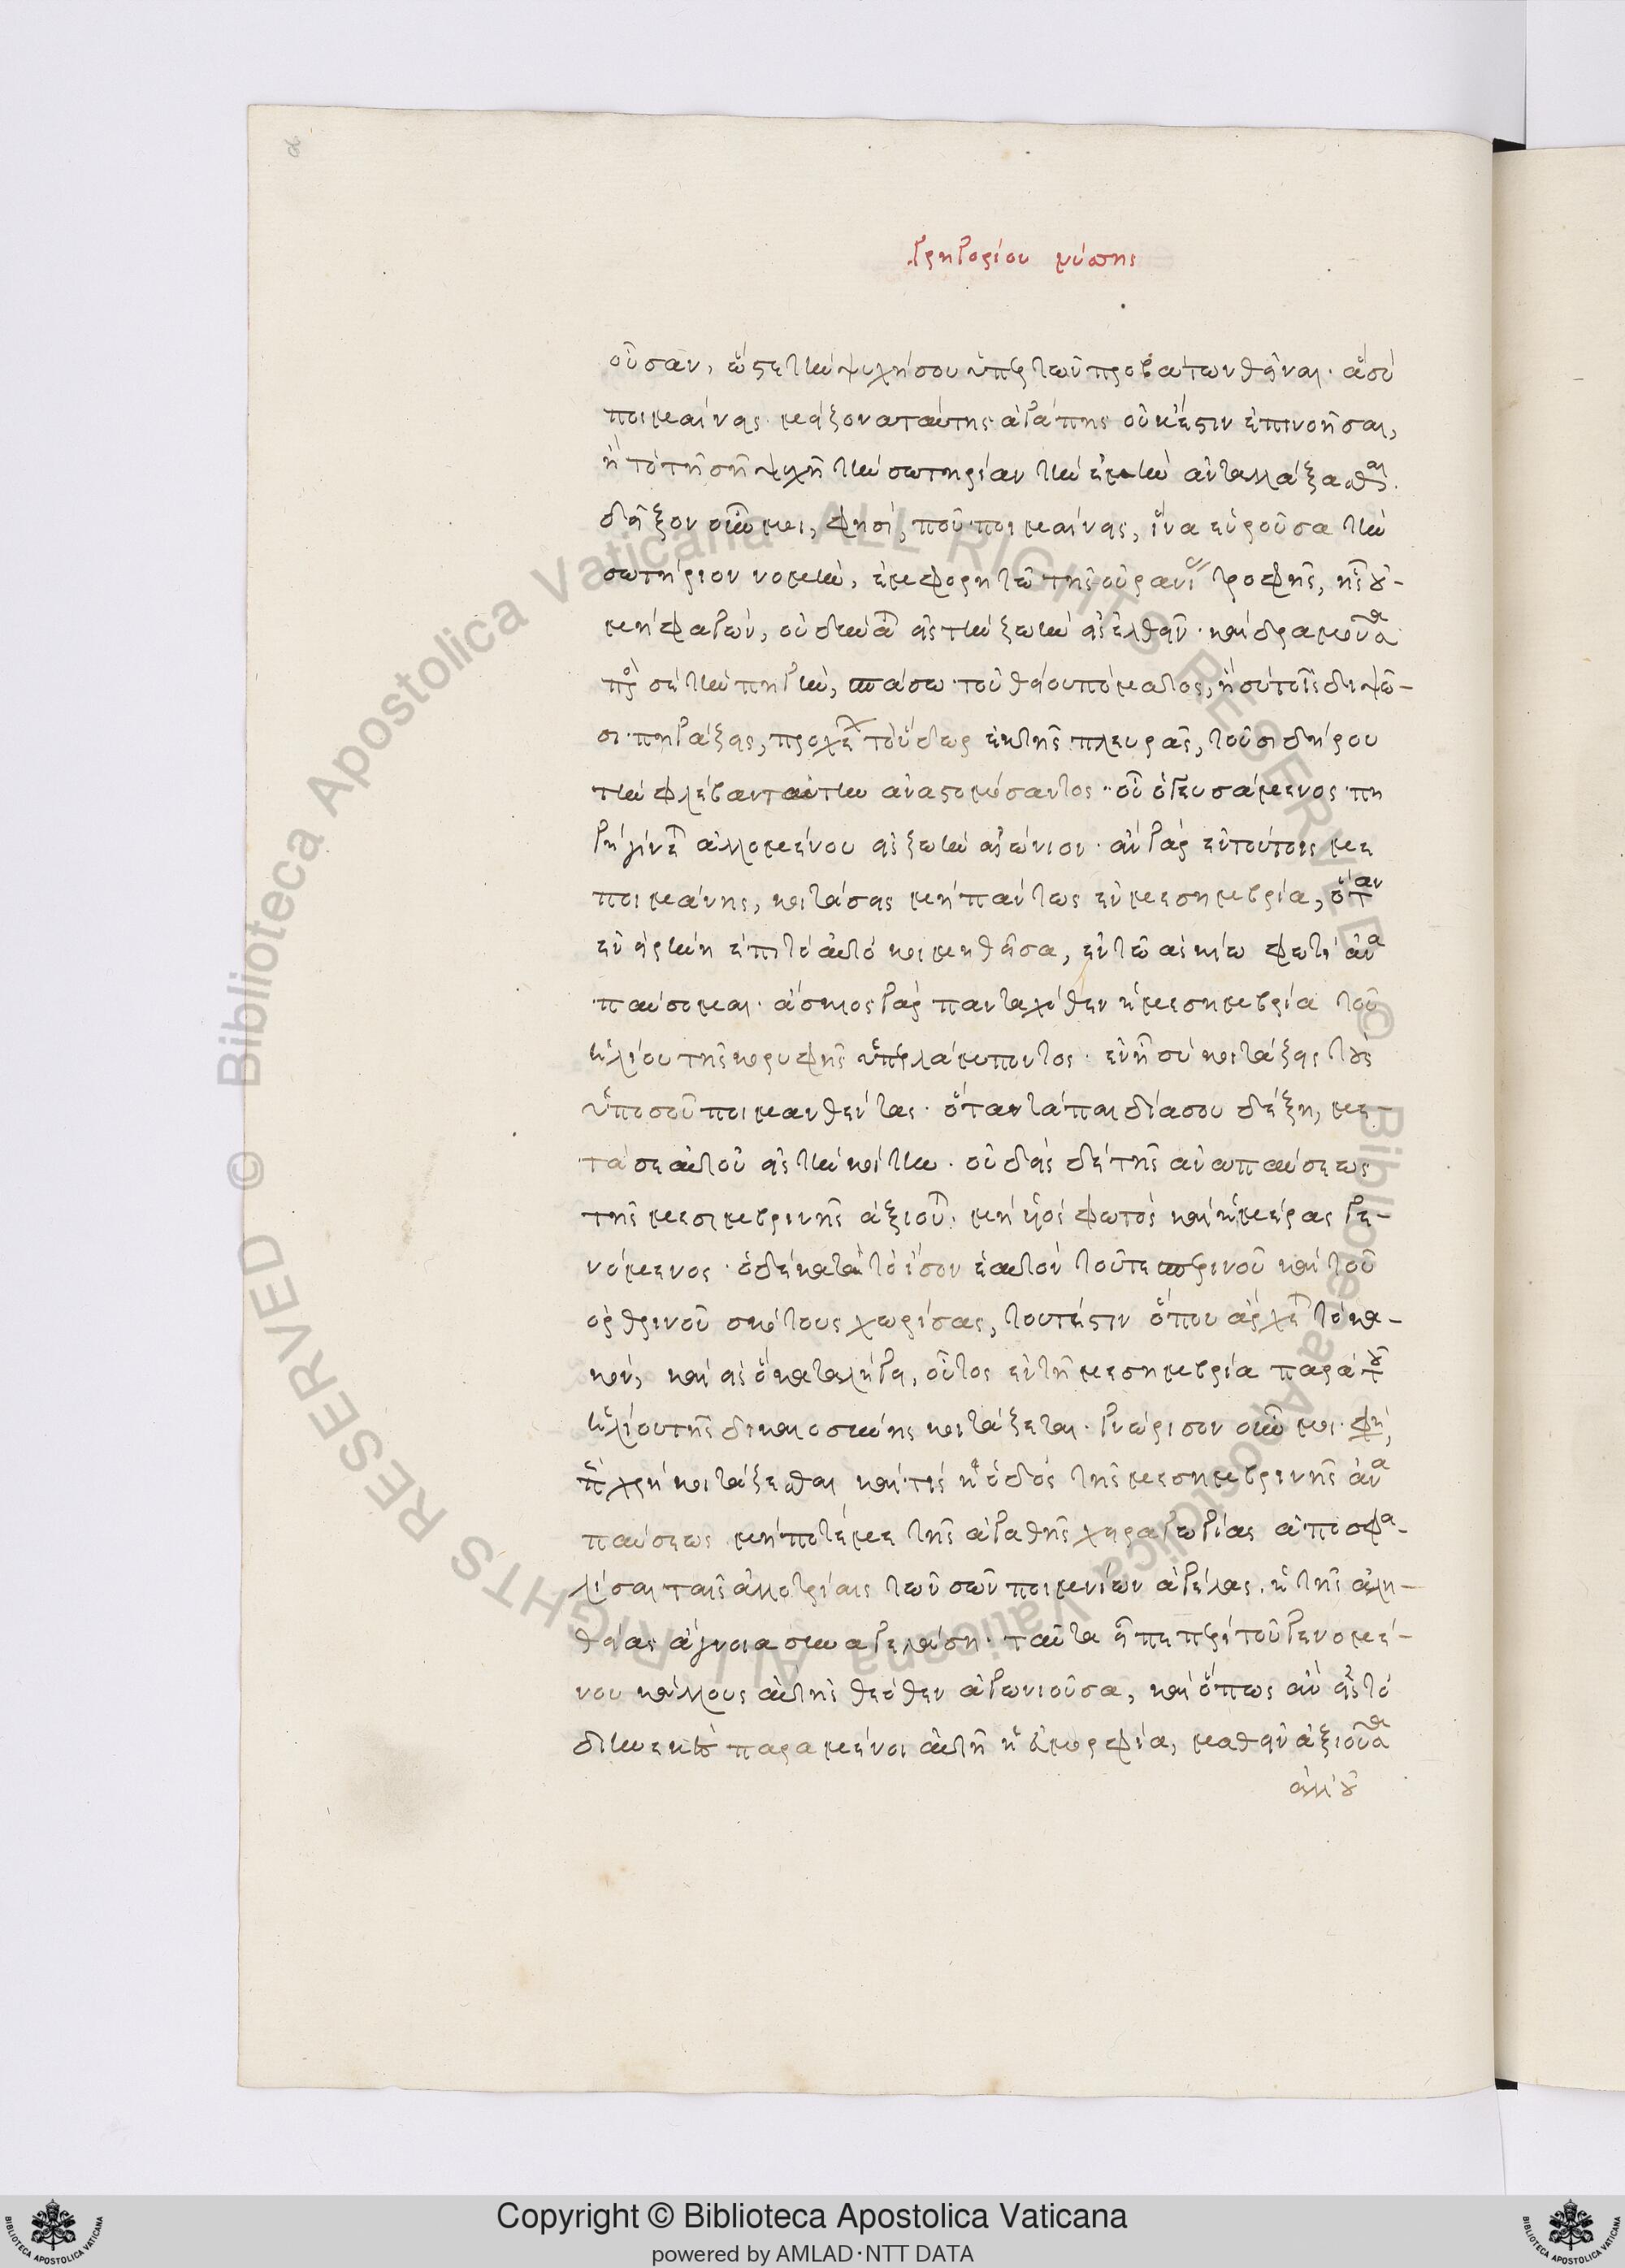 Γρηγορίου νύσης
οὖσαν, ὥστε τὴν ψυχήν σου ὑπὲρ τῶν προβάτων θεῖναι· ἃ σὺ
ποιμαίνεις· μείζονα ταύτης ἀγάπης οὐκ ἔστιν ἐπινοῆσαι,
ἢ τὸ τῆ σῆ ψυχῆ τὴν σωτηρίαν τὴν ἐμὴν ἀνταλλάξασθαι.
δεῖξον οὖν μοι, φησὶ, ποῦ ποιμαίνεις, ἵνα εὑροῦσα τὴν
σωτήριον νομὴν, ἐμφορηθῶ τῆς οὐρανίας τροφῆς, ἧς ὁ
μὴ φαγὼν, οὐ δύναται εἰς τὴν ζωὴν εἰσελθεῖν· καὶ δραμοῦσα
πρὸς σὲ τὴν πηγὴν, σπάσω τοῦ θείου πόματος, ὃ σὺ τοῖς διψῶ-
σι πηγάζεις, προχέων τὸ ὕδωρ ἐκ τῆς πλευρᾶς, τοῦ σιδήρου
τὴν φλέβα ταύτην ἀναστομώσαντος· οὗ ὁ γευσάμενος πη
γὴ γίνεται ἁλλομένου εἰς ζωὴν αἰώνιον· ἂν γὰρ ἐν τούτοις με
ποιμάνης, κοιτάσεις με πάντως ἐν μεσημβρία, ὅταν
ἐν εἰρήνη ἐπιτοαυτὸ κοιμηθεῖσα, ἐν τῶ ἀσκίω φωτὶ ἀνα
παύσομαι· ἄσκιος γὰρ πανταχόθεν ἡ μεσημβρία τοῦ
ἡλίου τῆς κορυφῆς ὑπερλάμποντος· ἐν ἧ σὺ κοιτάζεις τοὺς
ὑπὸ σοῦ ποιμανθέντας· ὅταν τὰ παιδία σου δέξη, με-
τὰ σεαυτοῦ εἰς τὴν κοίτην· οὐδεὶς δὲ τῆς ἀναπαύσεως
τῆς μεσημβρινῆς ἀξιοῦται μὴ υἱὸς φωτὸς καὶ ἡμέρας γε-
νόμενος· ὁ δὲ κατὰ τὸ ἴσον ἑαυτὸν τοῦ τε ἑσπερινοῦ καὶ τοῦ
ὀρθρινοῦ σκότους χωρίσας, τουτέστιν ὅπου ἄρχεται τὸ κα-
κὸν, καὶ εἰς ὃ καταλήγει, οὗτος ἐν τῆ μεσημβρία παρὰ τοῦ
ἡλίου τῆς δικαιοσύνης κοιτάζεται· γνώρισον οὖν μοι φησὶ,
πῶς χρὴ κοιτάζεσθαι καὶ τίς ἡ ὁδὸς τῆς μεσημβρινῆς ἀνα
παύσεως μήποτέ με τῆς ἀγαθῆς χειραγωγίας ἀποσφα-
λίσαι ταῖς ἀλλοτρίαις τῶν σῶν ποιμνίων ἀγέλαις, ἡ τῆς ἀλη-
θείας ἄγνοια συναγελάση· ταῦτα εἶπε περὶ τοῦ γενομέ-
νου κάλλους αὐτῆς θεόθεν ἀγωνιοῦσα, καὶ ὅπως ἂν εἰς τὸ
διηνεκὲς παραμένοι αὐτῆ ἡ εὐμορφία, μαθεῖν ἀξιοῦσα
ἀλλ' οὐ